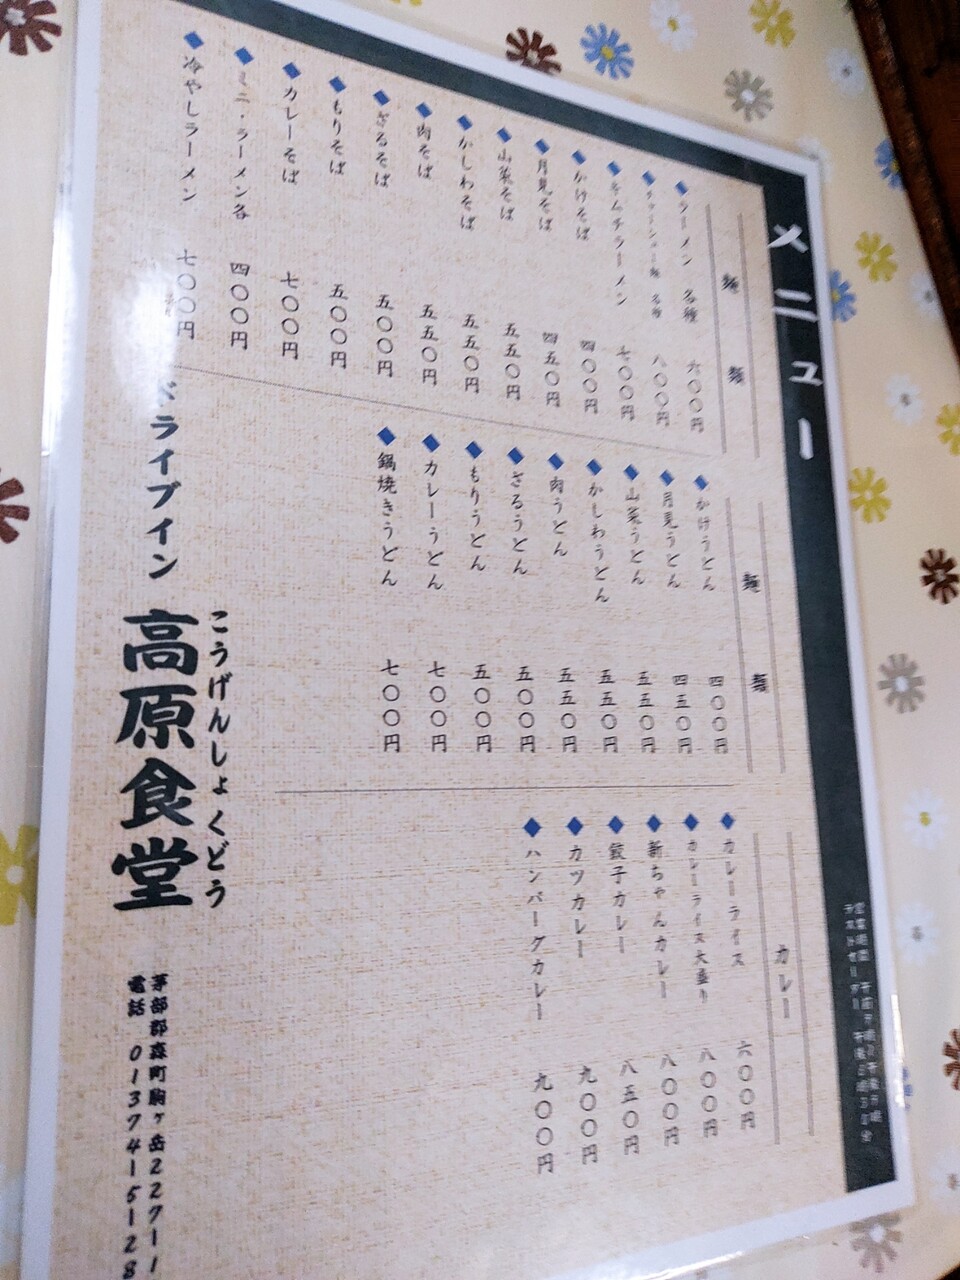 メニュー
麺 麺
ラーメン 各種 六〇〇円
チャーシュー麺 各種 八〇〇円
キムチラーメン 七〇〇円
かけそば 四〇〇円
月見そば 四五〇円
山菜そば 五五〇円
かしわそば 五五〇円
肉そば 五五〇円
ざるそば 五〇〇円
もりそば 五〇〇円
カレーそば 七〇〇円
ミニ・ラーメン各 四〇〇円
冷やしラーメン 七〇〇円
麺 麺
かけうどん 四〇〇円
月見うどん 四五〇円
山菜うどん 五五〇円
かしわうどん 五五〇円
肉うどん 五五〇円
ざるうどん 五〇〇円
もりうどん 五〇〇円
カレーうどん 七〇〇円
鍋焼きうどん 七〇〇円
カレー
カレーライス 六〇〇円
カレーライス大盛り 八〇〇円
新ちゃんカレー 八〇〇円
餃子カレー 八五〇円
カツカレー 九〇〇円
ハンバーグカレー 九〇〇円
こうげんしょくどう
ドライブイン 高原食堂
茅部郡森町駒ヶ岳227-1
電話 01374-5-128